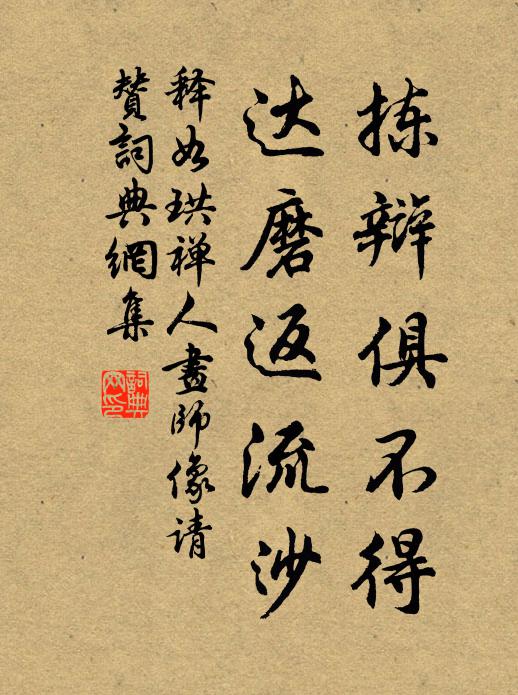 拣辩俱不得
达磨返流沙
释如珙禅人画师像请
赞词典网集
词典网印